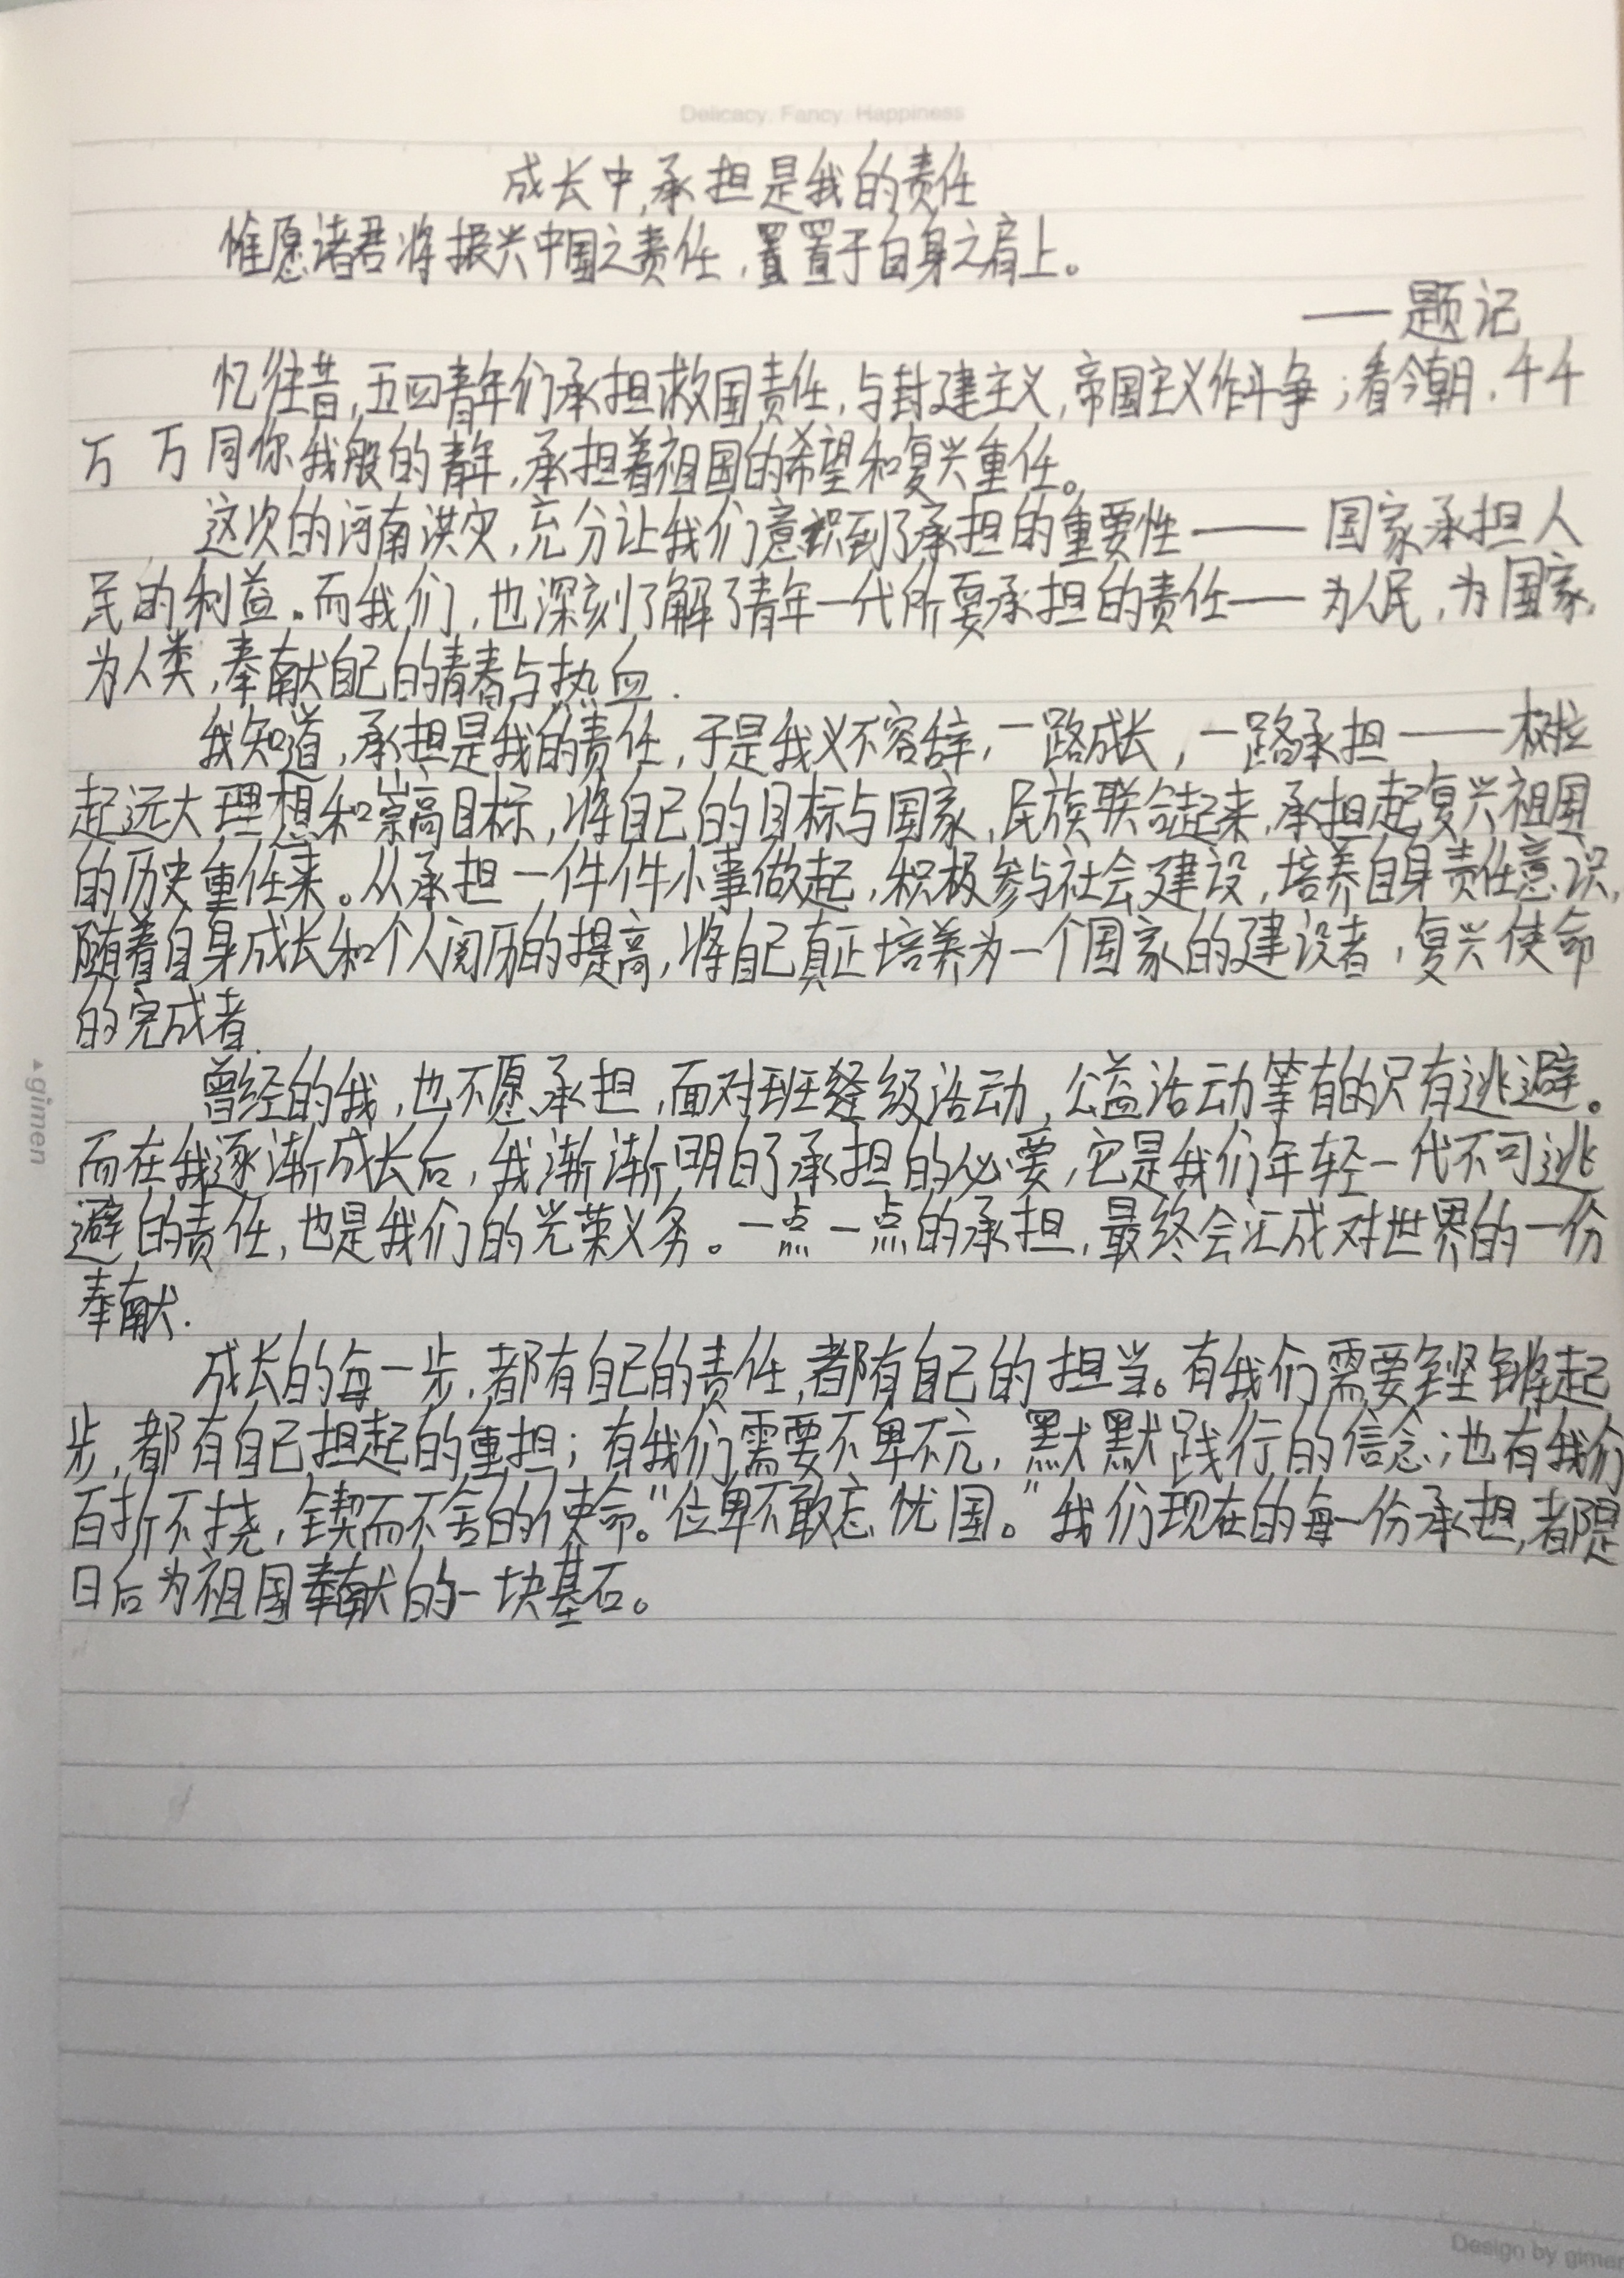 Delicacy. Fancy. Happiness
成长中,承担是我的责任
惟愿诸君将振兴中国之责任,置置于自身之肩上。
——题记
忆往昔,五四青年们承担救国责任,与封建主义,帝国主义作斗争;看今朝,千千
万万同你我般的青年,承担着祖国的希望和复兴重任。
这次的河南洪灾,充分让我们意识到了承担的重要性——国家承担人
民的利益。而我们,也深刻了解了青年一代所要承担的责任——为人民,为国家,
为人类,奉献自己的青春与热血.
我知道,承担是我的责任,于是我义不容辞,一路成长,一路承担——树拉
起远大理想和崇高目标,将自己的目标与国家,民族联合起来,承担起复兴祖国
的历史重任来。从承担一件件小事做起,积极参与社会建设,培养自身责任意识,
随着自身成长和个人阅历的提高,将自己真正培养为一个国家的建设者,复兴使命
的完成者.
曾经的我,也不愿承担,面对班级活动,公益活动等有的只有逃避。
而在我逐渐成长后,我渐渐明白了承担的必要,它是我们年轻一代不可逃
避的责任,也是我们的光荣义务。一点一点的承担,最终会汇成对世界的一份
奉献.
成长的每一步,都有自己的责任,都有自己的担当。有我们需要坚锵起
步,都有自己担起的重担;有我们需要不卑不亢,默默践行的信念;也有我们
百折不挠,锲而不舍的使命。"位卑不敢忘忧国。"我们现在的每一份承担,都是
日后为祖国奉献的一块基石。
gimen
Design by gimen